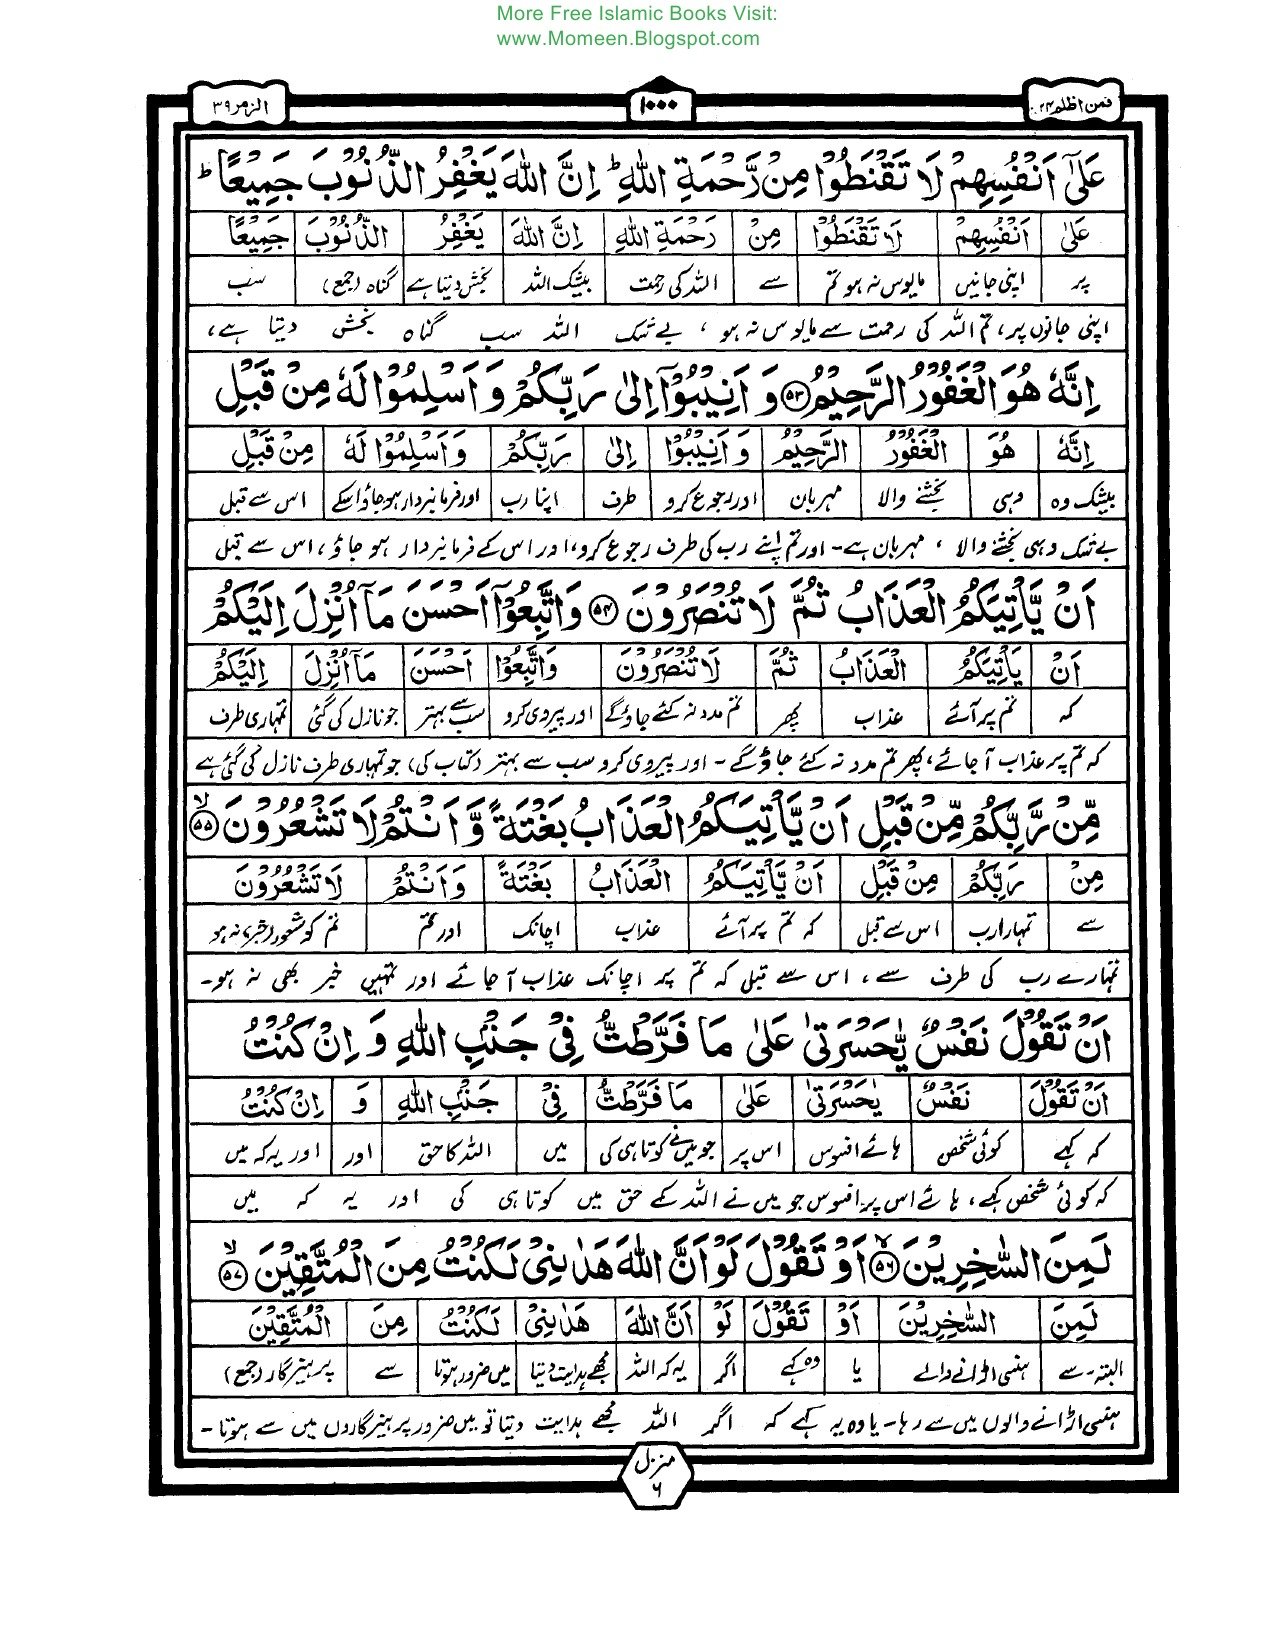 More Free Islamic Books Visit:
www.Momeen.Blogspot.com
فمن اظلم ۲۴ ۱۰۰۰ الزمر ۳۹
عَلٰٓى اَنْفُسِهِمْ لَا تَقْنَطُوْا مِنْ رَّحْمَةِ اللّٰهِ ؕ اِنَّ اللّٰهَ يَغْفِرُ الذُّنُوْبَ جَمِيْعًا ؕ
عَلٰٓى اَنْفُسِهِمْ لَا تَقْنَطُوْا مِنْ رَحْمَةِ اللّٰهِ اِنَّ اللّٰهَ يَغْفِرُ الذُّنُوْبَ جَمِيْعًا
پر اپنی جانیں مایوس نہ ہو تم سے اللہ کی رحمت بیشک اللہ بخش دیتا ہے گناہ (جمع) سب
اپنی جانوں پر، تم اللہ کی رحمت سے مایوس نہ ہو ، بے شک اللہ سب گناہ بخش دیتا ہے،
اِنَّهٗ هُوَ الْغَفُوْرُ الرَّحِيْمُ ۵۳ وَ اَنِيْبُوْٓا اِلٰى رَبِّكُمْ وَ اَسْلِمُوْا لَهٗ مِنْ قَبْلِ
اِنَّهٗ هُوَ الْغَفُوْرُ الرَّحِيْمُ وَ اَنِيْبُوْٓا اِلٰى رَبِّكُمْ وَ اَسْلِمُوْا لَهٗ مِنْ قَبْلِ
بیشک وہ وہی بخشنے والا مہربان اور رجوع کرو طرف اپنا رب اور فرمانبردار ہو جاؤ اسکے اس سے قبل
بے شک وہی بخشنے والا ، مہربان ہے۔ اور تم اپنے رب کی طرف رجوع کرو، اور اس کے فرمانبردار ہو جاؤ ، اس سے قبل
اَنْ يَّاْتِيَكُمُ الْعَذَابُ ثُمَّ لَا تُنْصَرُوْنَ ۵۴ وَاتَّبِعُوْٓا اَحْسَنَ مَآ اُنْزِلَ اِلَيْكُمْ
اَنْ يَاْتِيَكُمُ الْعَذَابُ ثُمَّ لَا تُنْصَرُوْنَ وَاتَّبِعُوْٓا اَحْسَنَ مَآ اُنْزِلَ اِلَيْكُمْ
کہ تم پر آئے عذاب پھر تم مدد نہ کئے جاؤگے اور پیروی کرو سب سے بہتر جو نازل کی گئی تمہاری طرف
کہ تم پر عذاب آ جائے، پھر تم مدد نہ کئے جاؤ گے ۔ اور پیروی کرو سب سے بہتر (کتاب کی) جو تمہاری طرف نازل کی گئی ہے
مِّنْ رَّبِّكُمْ مِّنْ قَبْلِ اَنْ يَّاْتِيَكُمُ الْعَذَابُ بَغْتَةً وَّ اَنْتُمْ لَا تَشْعُرُوْنَ ۵۵ ۙ
مِنْ رَبِّكُمْ مِنْ قَبْلِ اَنْ يَّاْتِيَكُمُ الْعَذَابُ بَغْتَةً وَ اَنْتُمْ لَا تَشْعُرُوْنَ
سے تمہارا رب اس سے قبل کہ تم پر آئے عذاب اچانک اور تم تم کو شعور (خبر) نہ ہو
تمہارے رب کی طرف سے ، اس سے قبل کہ تم پر اچانک عذاب آ جائے اور تمہیں خبر بھی نہ ہو۔
اَنْ تَقُوْلَ نَفْسٌ يّٰحَسْرَتٰى عَلٰى مَا فَرَّطْتُّ فِيْ جَنْۢبِ اللّٰهِ وَ اِنْ كُنْتُ
اَنْ تَقُوْلَ نَفْسٌ يٰحَسْرَتٰى عَلٰى مَا فَرَّطْتُّ فِيْ جَنْۢبِ اللّٰهِ وَ اِنْ كُنْتُ
کہ کہے کوئی شخص ہائے افسوس اس پر جو میں نے کوتاہی کی میں اللہ کا حق اور اور یہ کہ میں
کہ کوئی شخص کہے ، ہائے اس پر افسوس جو میں نے اللہ کے حق میں کوتاہی کی اور یہ کہ میں
لَمِنَ السّٰخِرِيْنَ ۵۶ ۙ اَوْ تَقُوْلَ لَوْ اَنَّ اللّٰهَ هَدٰىنِيْ لَكُنْتُ مِنَ الْمُتَّقِيْنَ ۵۷ ۙ
لَمِنَ السّٰخِرِيْنَ اَوْ تَقُوْلَ لَوْ اَنَّ اللّٰهَ هَدٰىنِيْ لَكُنْتُ مِنَ الْمُتَّقِيْنَ
البتہ۔ سے ہنسی اڑانے والے یا وہ کہے اگر یہ کہ اللہ مجھے ہدایت دیتا میں ضرور ہوتا سے پرہیزگار (جمع)
ہنسی اڑانے والوں میں سے رہا۔ یا وہ یہ کہے کہ اگر اللہ مجھے ہدایت دیتا تو میں ضرور پرہیزگاروں میں سے ہوتا ۔
منزل ۶